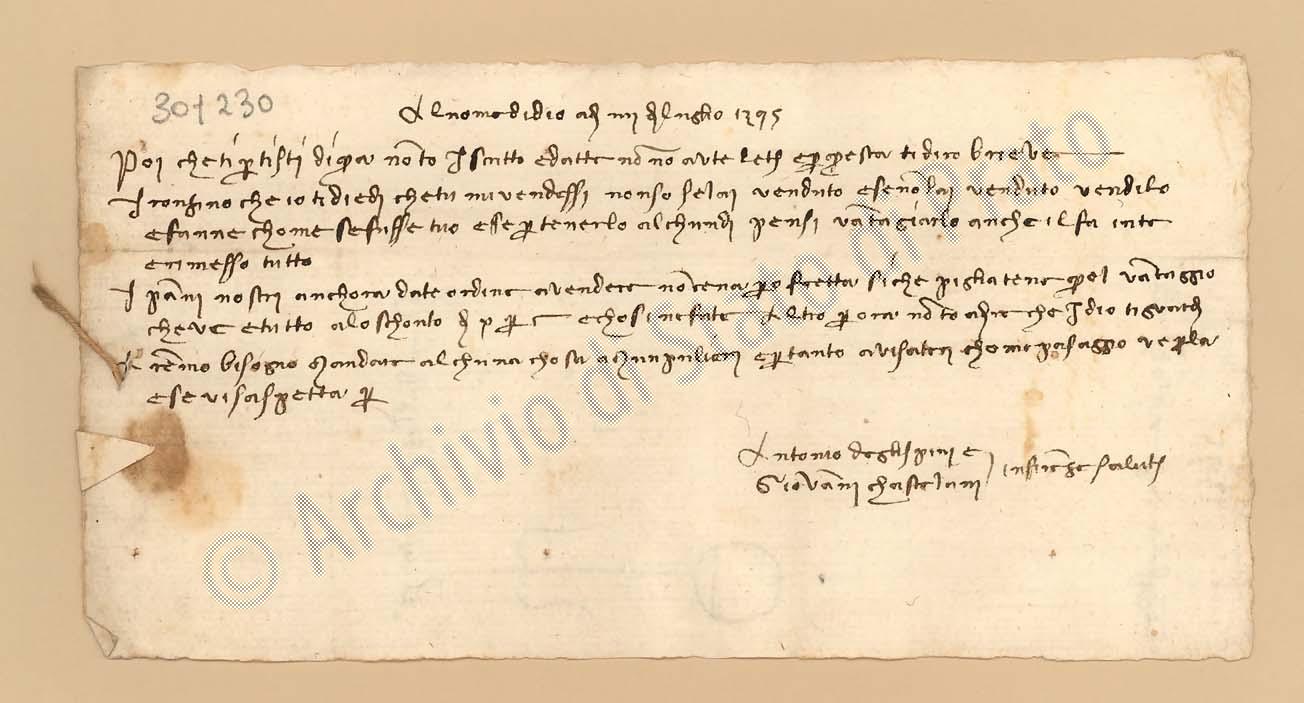 301 230
Al nome di dio a dì iiii di luglio 1395
Poi che ti partisti di qua non to iscritto e da tte no no avute lett e per questa ti diro brieve
I ronzino che io ti diedi che tu mi vendessi non so se lai venduto e se nollai venduto vendilo
e fanne chome se fusse tuo e se per tenerlo alchun dì pensi vantagiarlo anche il fa in te
e rimesso tutto
I panni nostri anchora date ordine a vendere non cena per fretta siche pigliatene quel vantaggio
che ve e tutto a lo schonto di per c e chosi ne fate Altro per ora no to a dire che Idio ti guardi
remo bisogno mandare alchuna chosa a Monpulieri e pertanto avisateci chome pasaggio ve per la
e se vi saspetta per
Antonio degli Spini e
Giovanni chastelani insieme salute
© Archivio di Stato di Prato